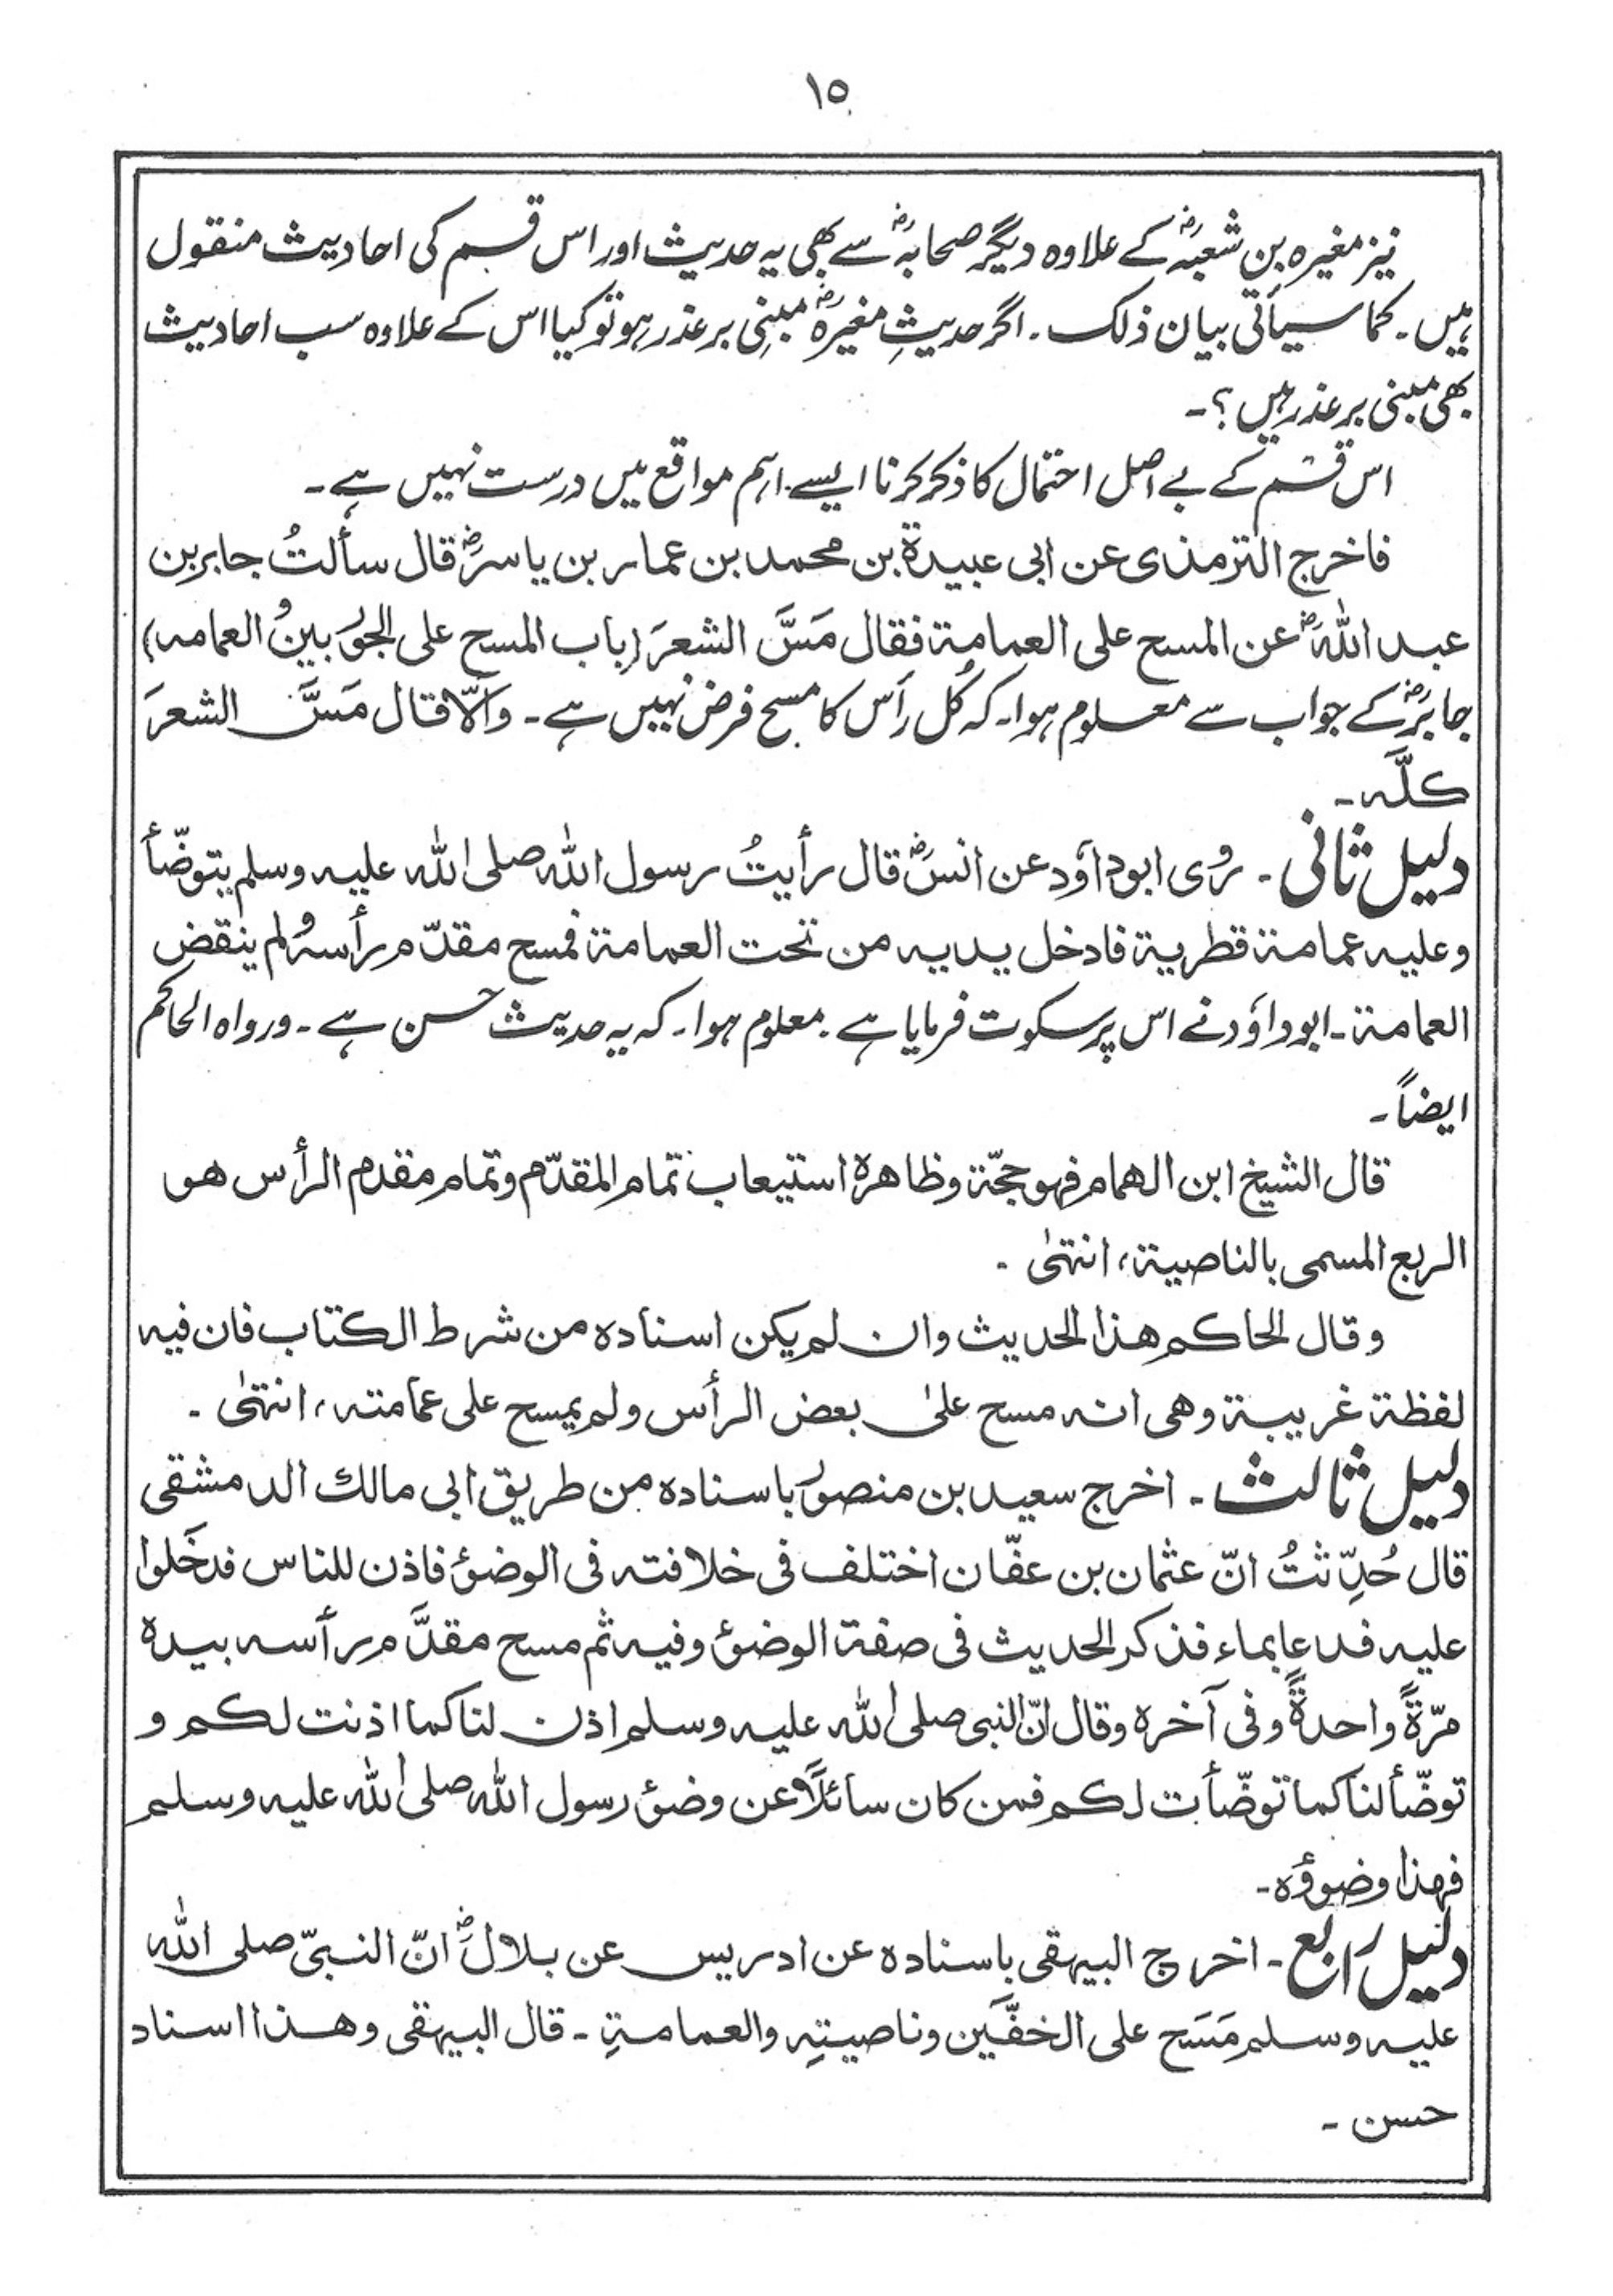 ١٥
نیز مغیرہ بن شعبہؓ کے علاوہ دیگر صحابہؓ سے بھی یہ حدیث اور اس قسم کی احادیث منقول
ہیں۔ کما سیأتی بیان ذلک۔ اگر حدیثِ مغیرہؓ مبنی بر عذر ہو تو کیا اس کے علاوہ سب احادیث
بھی مبنی بر عذر ہیں؟۔
اس قسم کے بے اصل احتمال کا ذکر کرنا ایسے اہم مواقع میں درست نہیں ہے۔
فاخرج الترمذی عن ابی عبیدة بن محمد بن عمار بن یاسرؓ قال سألتُ جابر بن
عبد اللہؓ عن المسح علی العمامة فقال مَسَّ الشعرَ (باب المسح علی الجوربین والعمامه)
جابرؓ کے جواب سے معلوم ہوا۔ کہ کُل رأس کا مسح فرض نہیں ہے۔ والّا قال مَسَّ الشعرَ
کلَّه۔
دلیل ثانی۔ روٰی ابوداؤد عن انسؓ قال رأیتُ رسول اللہ صلی اللہ علیه وسلم یتوضّأ
وعلیه عمامة قطریة فادخل یدیه من تحت العمامة فمسح مقدّم رأسه ولم ینقض
العمامة۔ ابوداؤد نے اس پر سکوت فرمایا ہے۔ معلوم ہوا۔ کہ یہ حدیث حسن ہے۔ ورواہ الحاکم
ایضاً۔
قال الشیخ ابن الهمام فهو حجّة وظاهرہ استیعاب تمام المقدّم وتمام مقدم الرأس هو
الربع المسمی بالناصیة، انتهٰی۔
وقال الحاکم هذا الحدیث وان لم یکن اسنادہ من شرط الکتاب فان فیه
لفظة غریبة وهی انه مسح علٰی بعض الرأس ولم یمسح علی عمامته، انتهٰی۔
دلیل ثالث۔ اخرج سعید بن منصور باسنادہ من طریق ابی مالك الدمشقی
قال حُدِّثتُ انّ عثمان بن عفّان اختلف فی خلافته فی الوضوٴ فاذن للناس فدخَلوا
علیه فدعا بماء فذکر الحدیث فی صفة الوضوٴ وفیه ثم مسح مقدَّم رأسه بیدہ
مرّةً واحدةً وفی آخرہ وقال انّ النبی صلی اللہ علیه وسلم اذن لنا کما اذنت لکم و
توضّأ لنا کما توضّأت لکم فمن کان سائلًا عن وضوٴ رسول اللہ صلی اللہ علیه وسلم
فهذا وضوؤہ۔
دلیل رابع۔ اخرج البیهقی باسنادہ عن ادریس عن بلالؓ انّ النبیّ صلی اللہ
علیه وسلم مَسَح علی الخفَّین وناصیتِه والعمامةِ۔ قال البیهقی وهذا اسناد
حسن۔